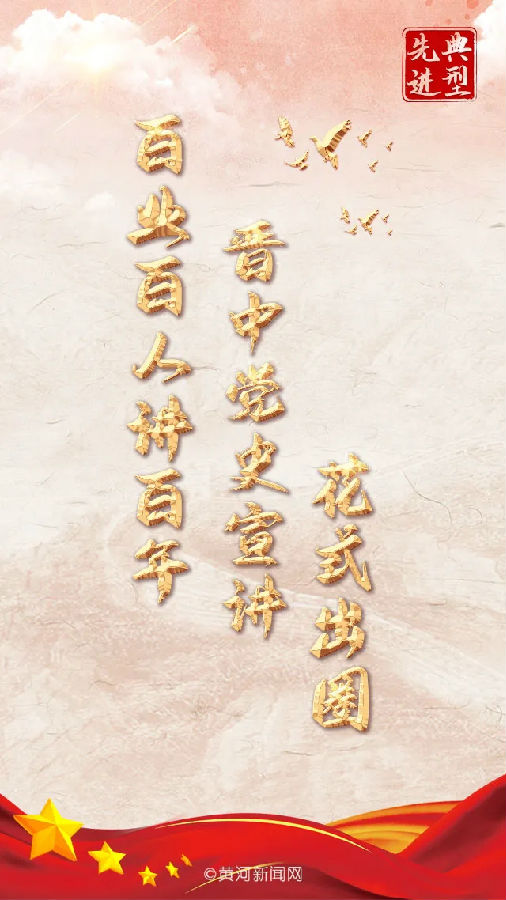 先进
典型
百业百人讲百年
晋中党史宣讲
花式出圈
©黄河新闻网